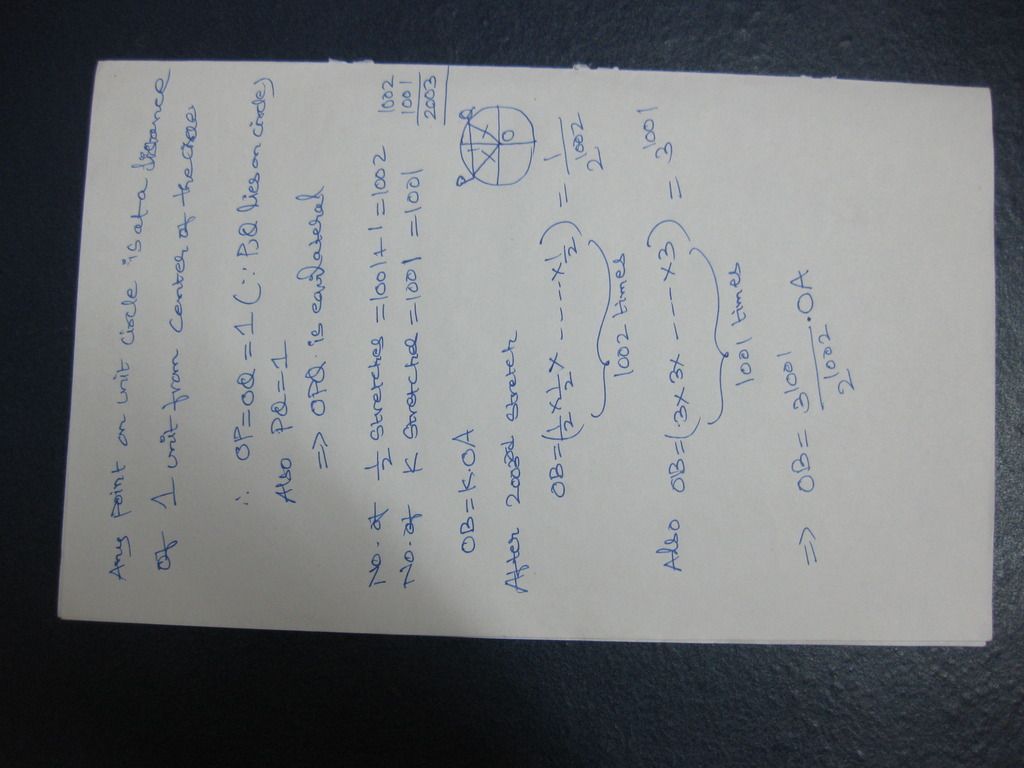 Any point on unit circle is at a distance
of 1 unit from center of the circle
∴ OP=OQ=1 (∵ P,Q lies on circle)
Also PQ=1
=> OPQ is equilateral
No. of 1/2 stretches =1001+1=1002
No. of K stretches =1001 =1001
1002
1001
2003
OB=K.OA
P Q
O
After 2003rd stretch
OB=(1/2 x 1/2 x ---- x 1/2) = 1/2^1002
1002 times
Also OB=(3x3x ---- x3) = 3^1001
1001 times
=> OB= 3^1001/2^1002 .OA